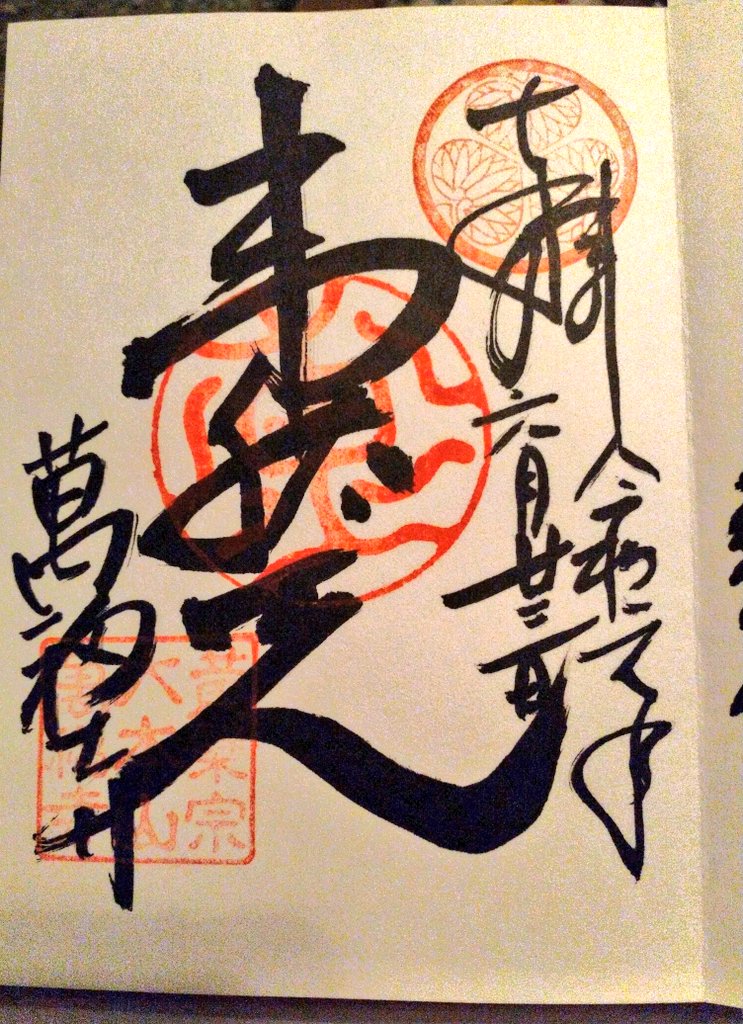 奉拝
令和元年
六月廿三日
韋駄天
萬福寺
黄檗宗
大本山
萬福寺